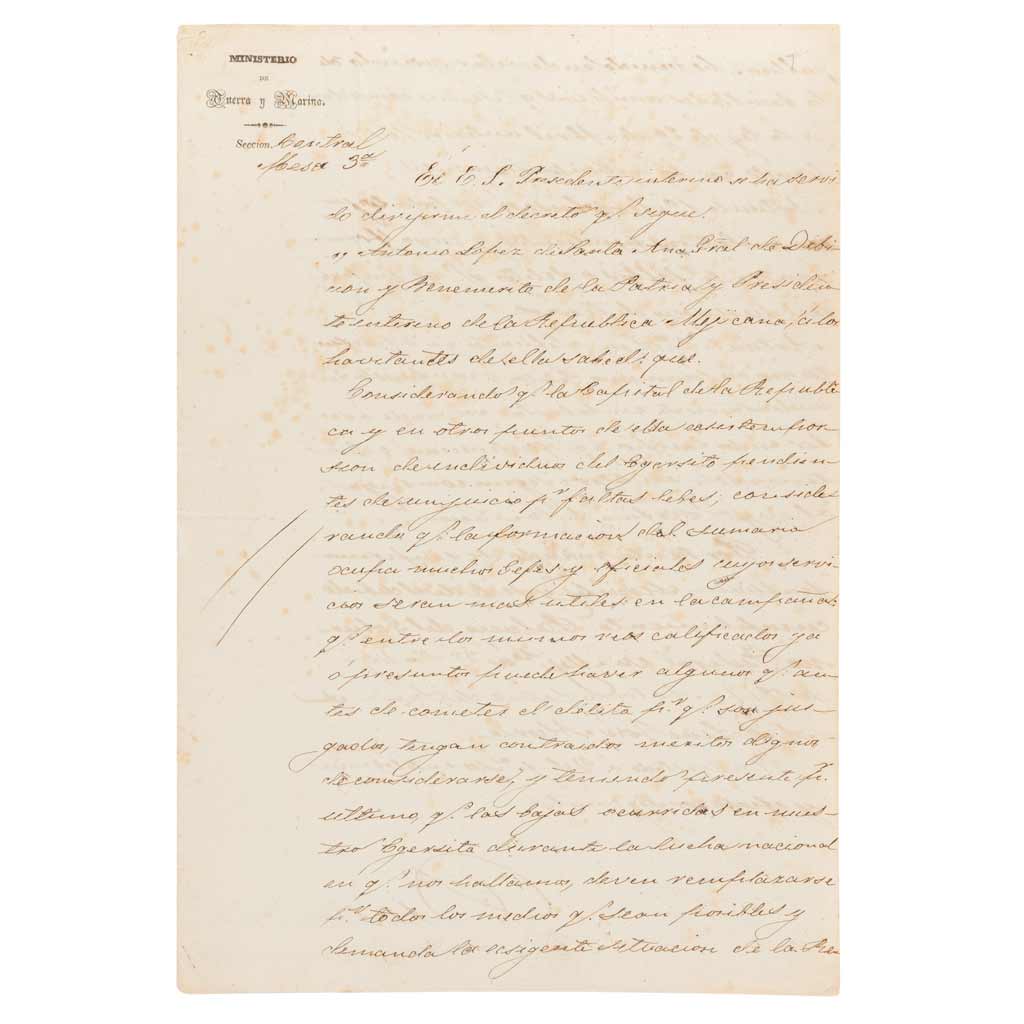 MINISTERIO
DE
Guerra y Marina.
Seccion. Central
Mesa 3ª
El E. S. Presidente interino se ha servi-
do dirijirme el decreto q.e sigue.
"Antonio Lopez de Santa Ana Gral de Dibi-
cion y Benemerito de la Patria, y Presiden
te interino de la Republica Mejicana, á los
havitantes de ella sabed: que.
Considerando q.e la Capital de la Republi
ca y en otros puntos de ella ecsisten por-
sion de individuos del Egersito pendien-
tes de un juicio p.r faltas lebes; conside
rando q.e la formacion del sumario
ocupa muchos Gefes y oficiales cuyos servi-
cios seran mas utiles en la campaña:
q.e entre los mismos reos calificados ya
ó presuntos puede haver algunos q.e an-
tes de cometer el delito p.r q.e son juz-
gados, tengan contraidos meritos dignos
de considerarse, y teniendo presente p.r
ultimo, q.e las bajas ocurridas en nues-
tro Egersito durante la lucha nacional
en q.e nos hallamos, deven remplazarse
p.r todos los medios q.e sean posibles y
demanda la ecsigente situacion de la Re